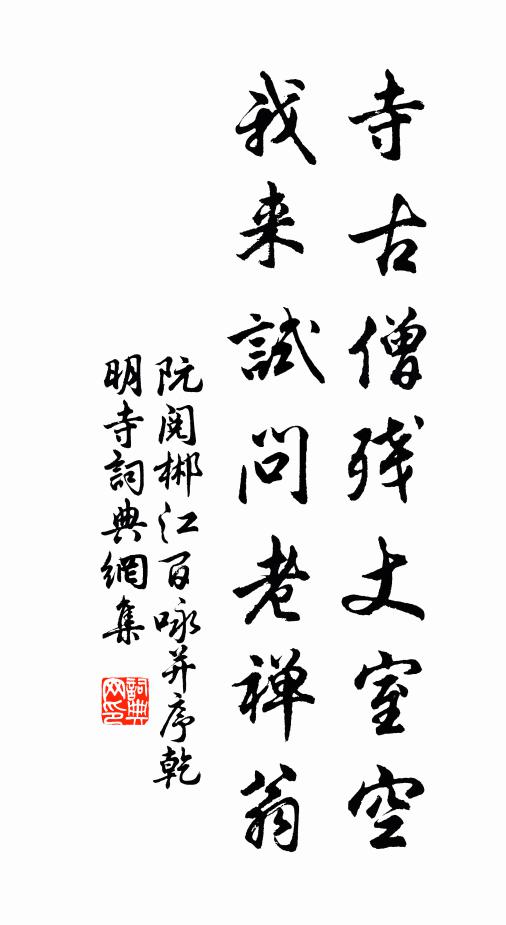 寺古僧残丈室空
我来試問老禅翁
阮閱郴江百咏并序乾
明寺詞典網集
詞典
网印